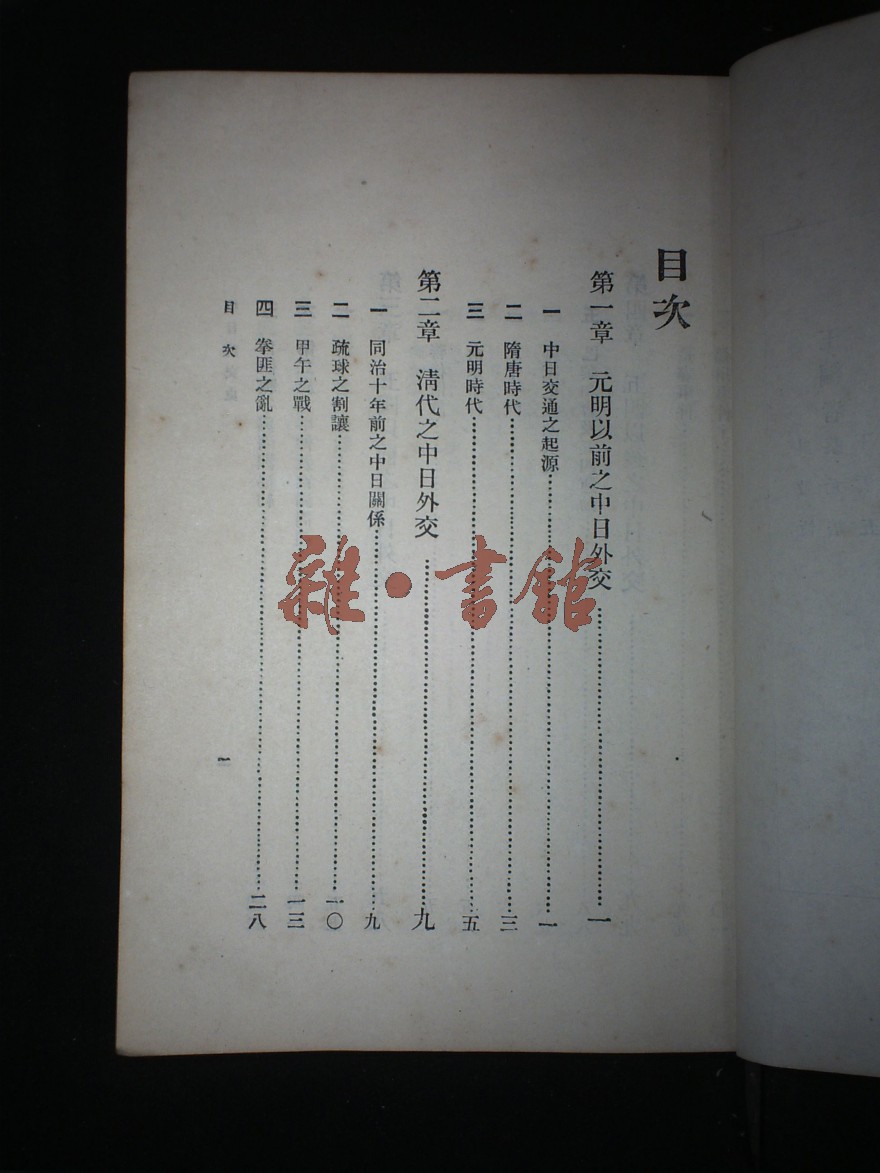 目次
第一章 元明以前之中日外交……一
一 中日交通之起源……一
二 隋唐時代……三
三 元明時代……五
第二章 淸代之中日外交……九
一 同治十年前之中日關係……九
二 疏球之割讓……一〇
三 甲午之戰……一三
四 拳匪之亂……二八
目次
一
雜·書館